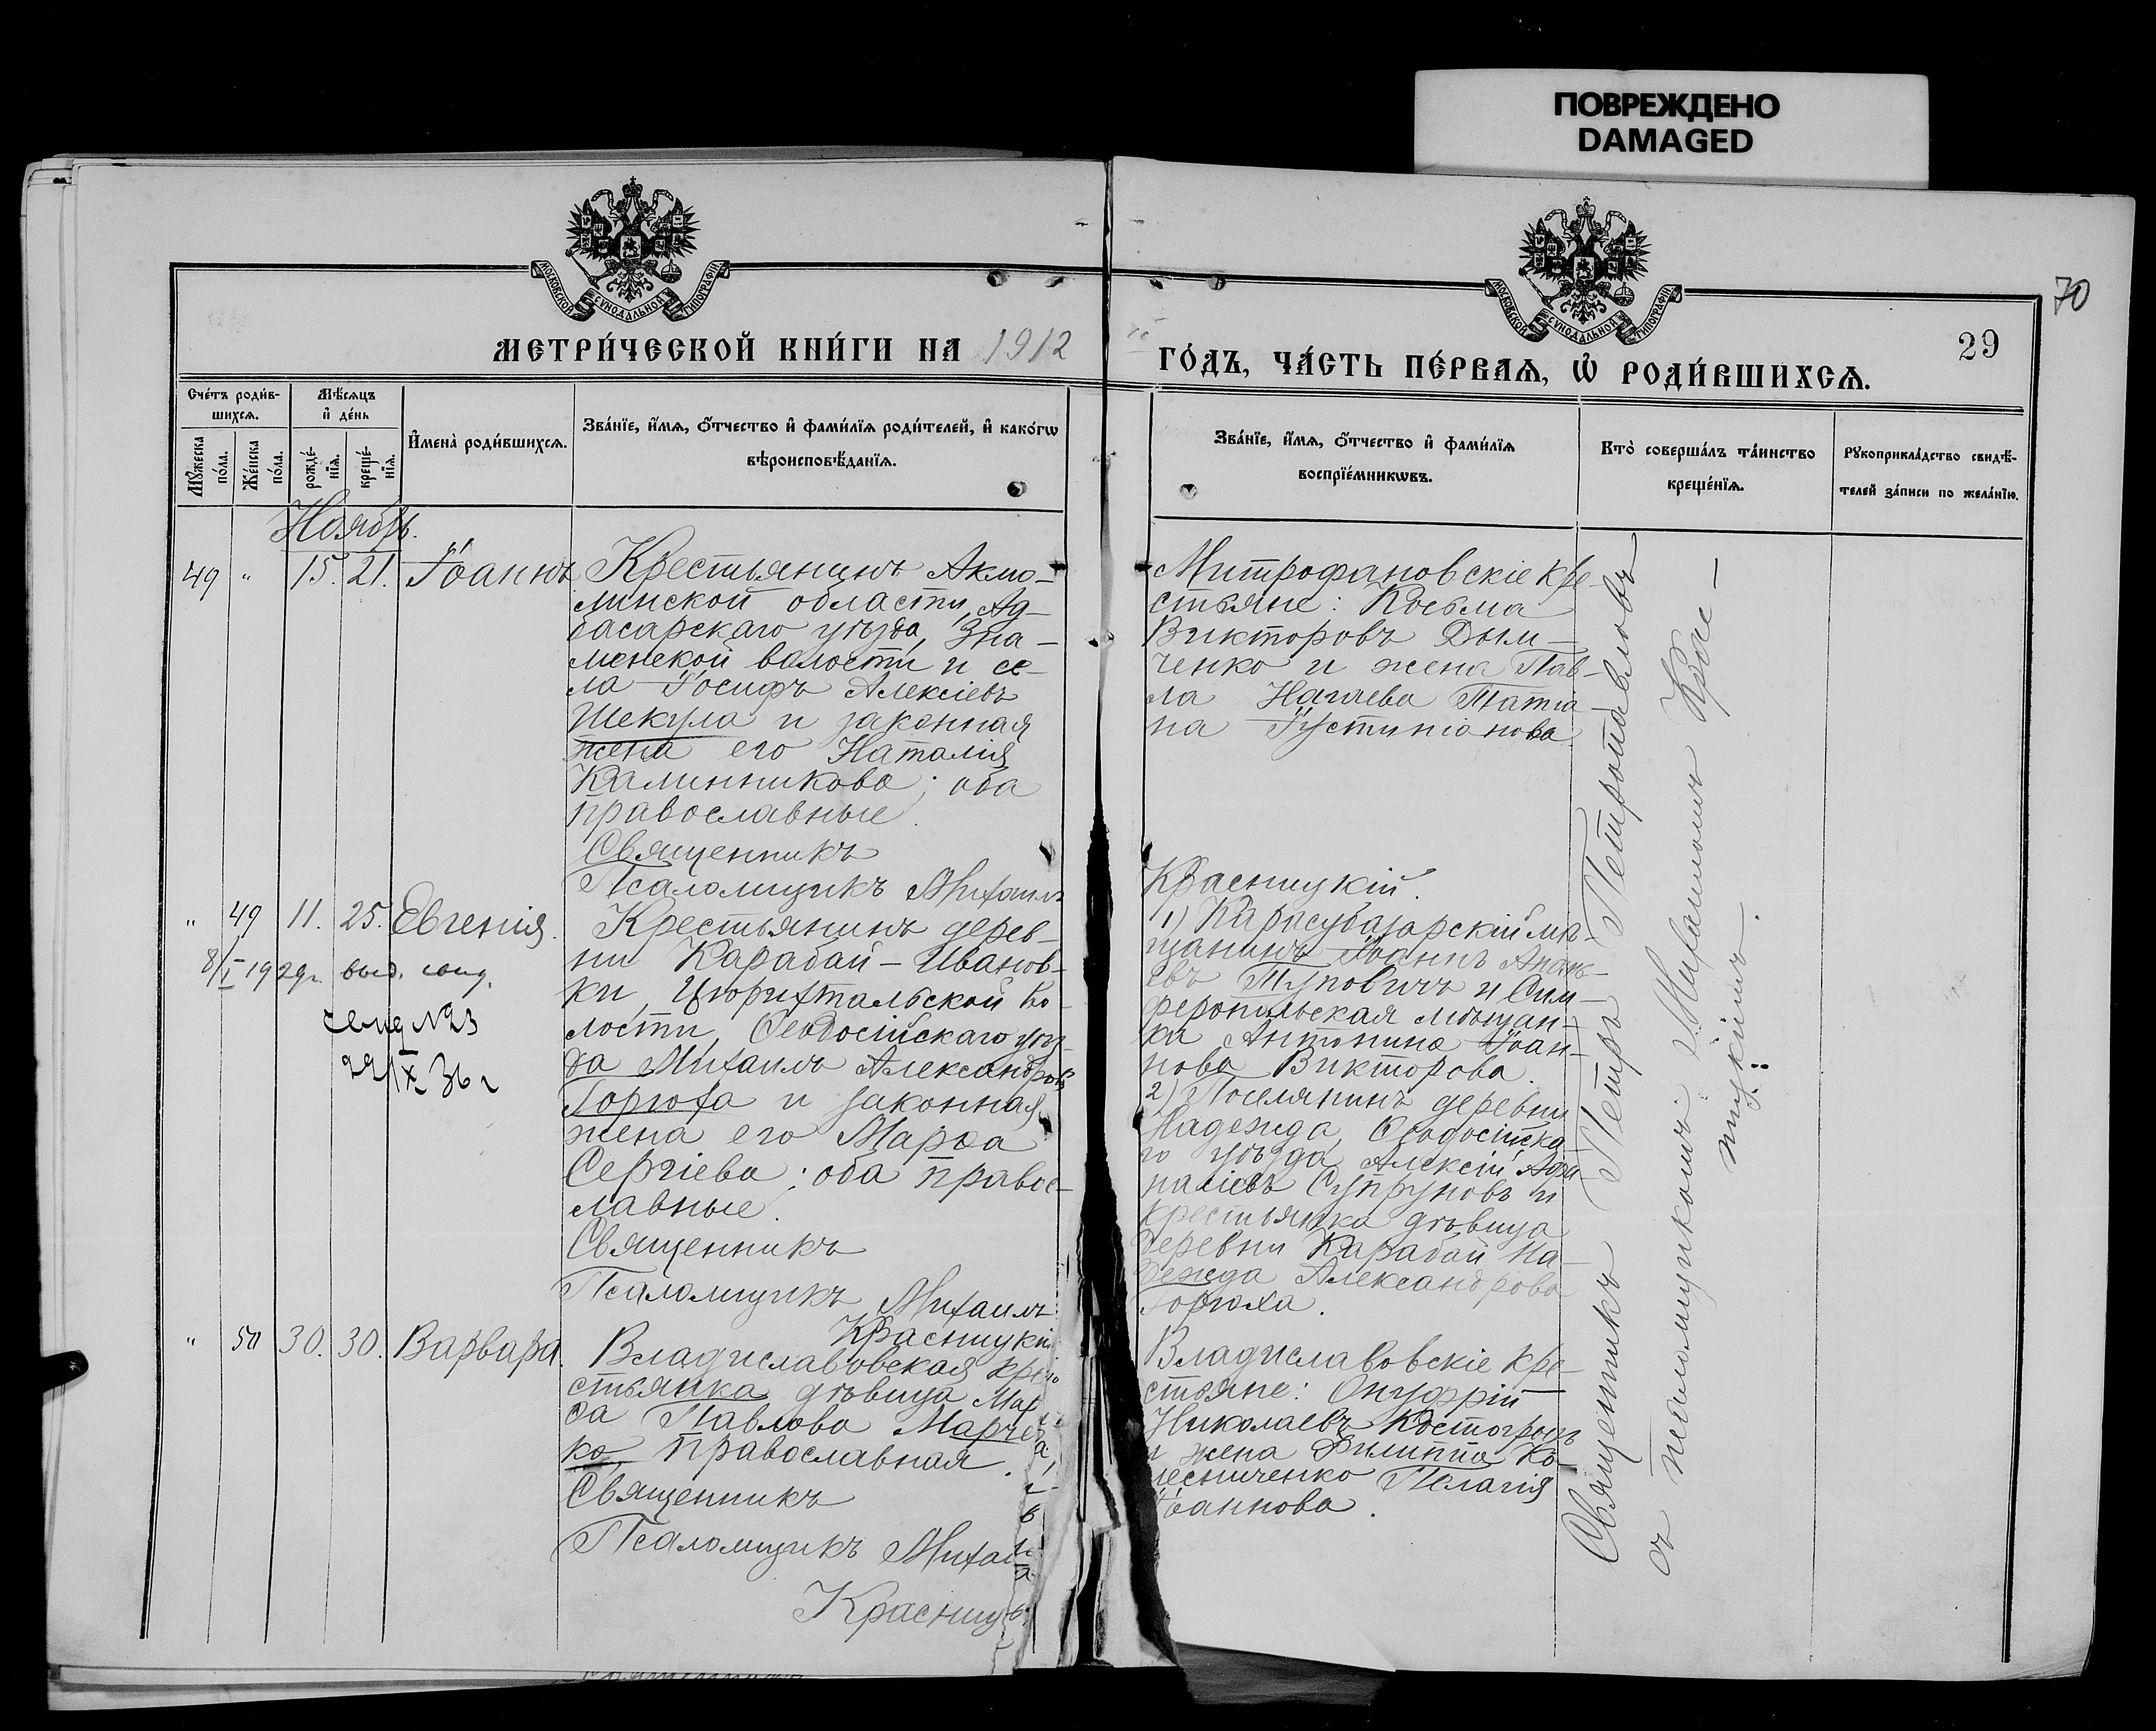 ПОВРЕЖДЕНО
DAMAGED
МОСКОВСКОЙ СУНОДАЛЬНОЙ ТИПОГРАФІИ
МОСКОВСКОЙ СУНОДАЛЬНОЙ ТИПОГРАФІИ
70
29
МЕТРИ́ЧЕСКОЙ КНИ́ГИ НА 1912
ГО́ДЪ, ЧА́СТЬ ПЕ́РВАѦ, Ѡ҆ РОДИ́ВШИХСѦ.
Сче́тъ роди́в-
шихсѧ.
Мꙋ́жеска по́ла.
Же́нска по́ла.
Мѣ́сѧцъ
и҆ де́нь
рожде́-
нїѧ.
креще́-
нїѧ.
И҆мена̀ роди́вшихсѧ.
Зва́нїе, и҆́мѧ, ѻ҆́тчество и҆ фами́лїѧ роди́телей, и҆ како́гѡ
вѣроисповѣ́данїѧ.
Зва́нїе, и҆́мѧ, ѻ҆́тчество и҆ фами́лїѧ
воспрїе́мникѡвъ.
Кто̀ соверша́лъ та́инство
креще́нїѧ.
Рꙋкоприкла́дство свидѣ́-
телей за́писи по жела́нїю.
Ноябрь.
49 " 15. 21. Іоаннъ
Крестьянинъ Акмо-
линской области, Ад-
басарскаго уѣзда, Зна-
менской волости и се-
ла Іосифъ Алексіевъ
Шекула и законная
жена его Наталія
Калинникова; оба
православные.
Священникъ
Псаломщикъ Михаилъ
Митрофановскіе кре-
стьяне: Косьма
Викторовъ Дым-
ченко и жена Пав-
ла Татіа-
на Іустиніанова.
Красницкій.
" 49 11. 25. Евгенія.
8/I 1929г. выд. свид.
свид №23
/X 36 г
Крестьянинъ дерев-
ни Карабай-Иванов-
ки, Цюрихтальской во-
лости, Ѳеодосійскаго уѣз-
да Михаилъ Александровъ
Горюха и законная
жена его Марѳа
Сергіева; оба правос-
лавные.
Священникъ
Псаломщикъ Михаилъ
Красницкій
1) Карасубазарскій мѣ-
щанинъ Іоаннъ Анань-
евъ Туповичъ и Сим-
феропольская мѣщан-
ка Антонина Іоан-
нова Викторова.
2) Поселянинъ деревни
Надежда, Ѳеодосійска-
го уѣзда, Алексій Аѳа-
насіевъ Супруновъ и
крестьянка дѣвица
деревни Карабай На-
дежда Александрова
Горюха.
" 50 30. 30. Варвара.
Владиславовская кре-
стьянка дѣвица Мар
ѳа Павлова Марчен
ко, православная.
Священникъ
Псаломщикъ Михаи
Красниц
Владиславовскіе кре-
стьяне: Онуфрій
Николаевъ Костогрызъ
и жена Филиппа Ко-
лесниченко Пелагія
Іоаннова.
Священникъ Петръ Петропавловъ
съ псаломщикомъ Михаиломъ Крас-
ницкимъ.